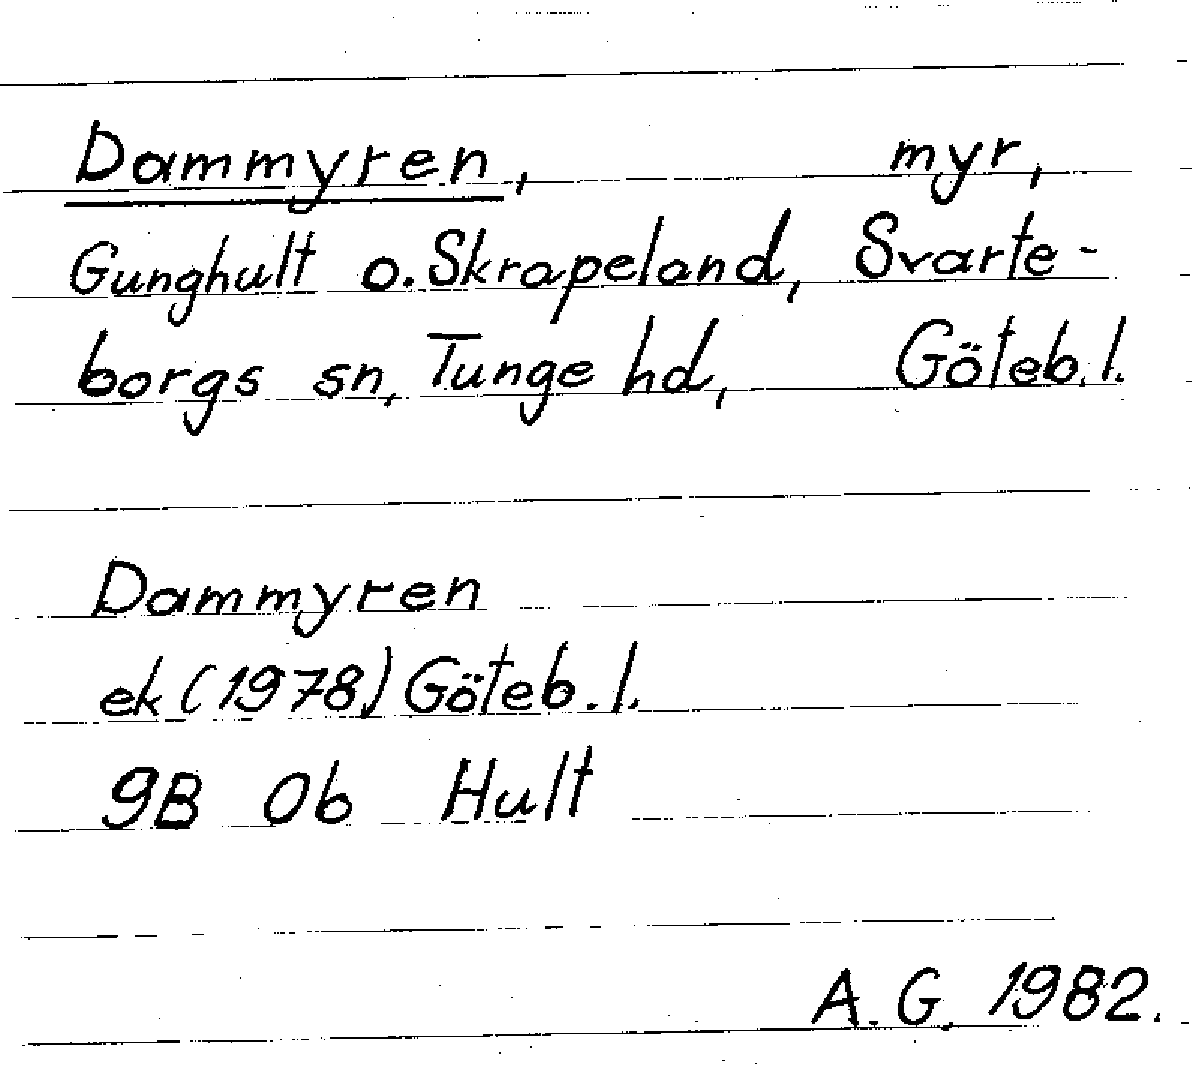 Dammyren, myr,
Gunghult o. Skrapeland, Svarte-
borgs sn, Tunge hd, Göteb. l.
Dammyren
ek (1978) Göteb. l.
9B 0b Hult
A. G. 1982.